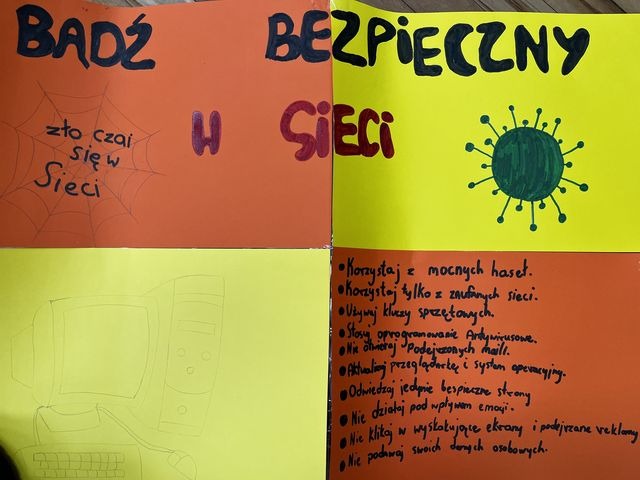 BĄDŹ BEZPIECZNY
W SIECI
zło czai
się w
Sieci
• Korzystaj z mocnych haseł.
• Korzystaj tylko z zaufanych sieci.
• Używaj kluczy sprzętowych.
• Stosuj oprogramowanie Antywirusowe.
• Nie otwieraj Podejrzonych maili.
• Aktualizuj przeglądarkę i system operacyjny.
• Odwiedzaj jedynie bezpieczne strony
• Nie działaj pod wpływem emocji.
• Nie klikaj w wyskakujące ekrany i podejrzane reklamy
• Nie podawaj swoich danych osobowych.